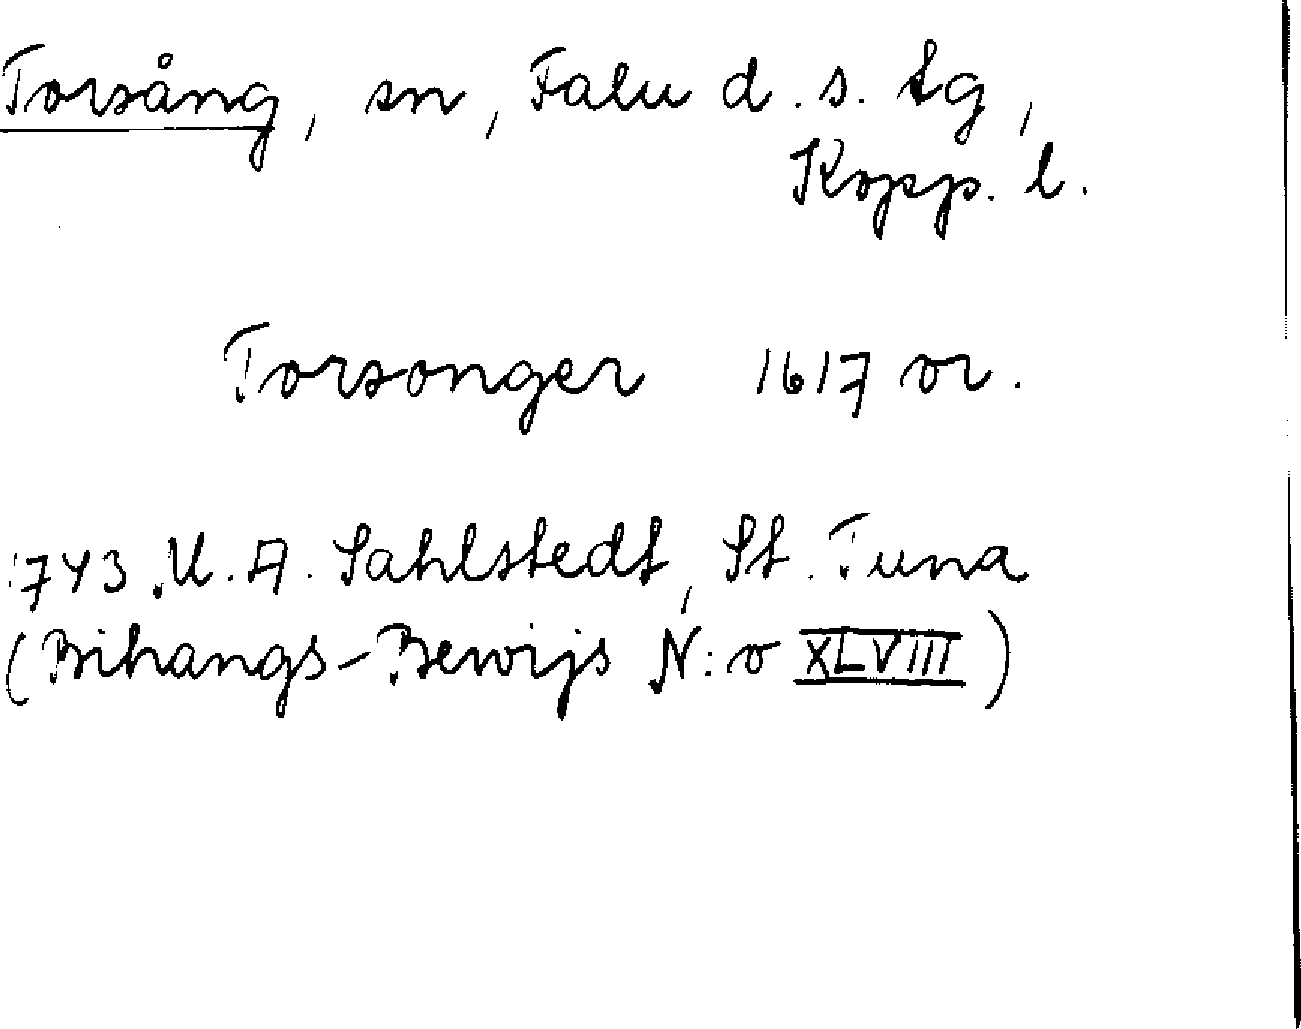 Torsång, sn, Falu d. s. tg,
Kopp. l.
Torsonger 1617 or.
1743. U. A. Sahlstedt, St. Tuna
(Bihangs-Bewijs N:o XLVIII)